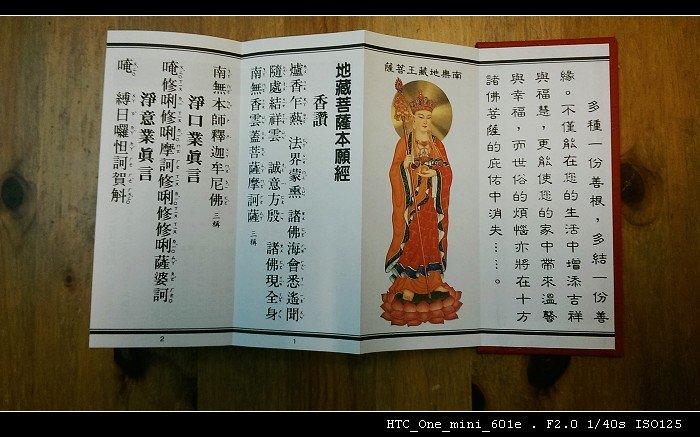 多種一份善根，多結一份善
緣。不僅能在您的生活中增添吉祥
與福慧，更能使您的家中帶來溫馨
與幸福，而世俗的煩惱亦將在十方
諸佛菩薩的庇佑中消失……。
南無地藏王菩薩
地藏菩薩本願經
香讚
爐香乍爇 法界蒙熏 諸佛海會悉遙聞
隨處結祥雲 誠意方殷 諸佛現全身
南無香雲蓋菩薩摩訶薩 三稱
1
南無本師釋迦牟尼佛 三稱
淨口業眞言
唵 修唎修唎摩訶修唎修修唎薩婆訶
淨意業眞言
唵 縛日囉怛訶賀斛
2
HTC_One_mini_601e . F2.0 1/40s ISO125